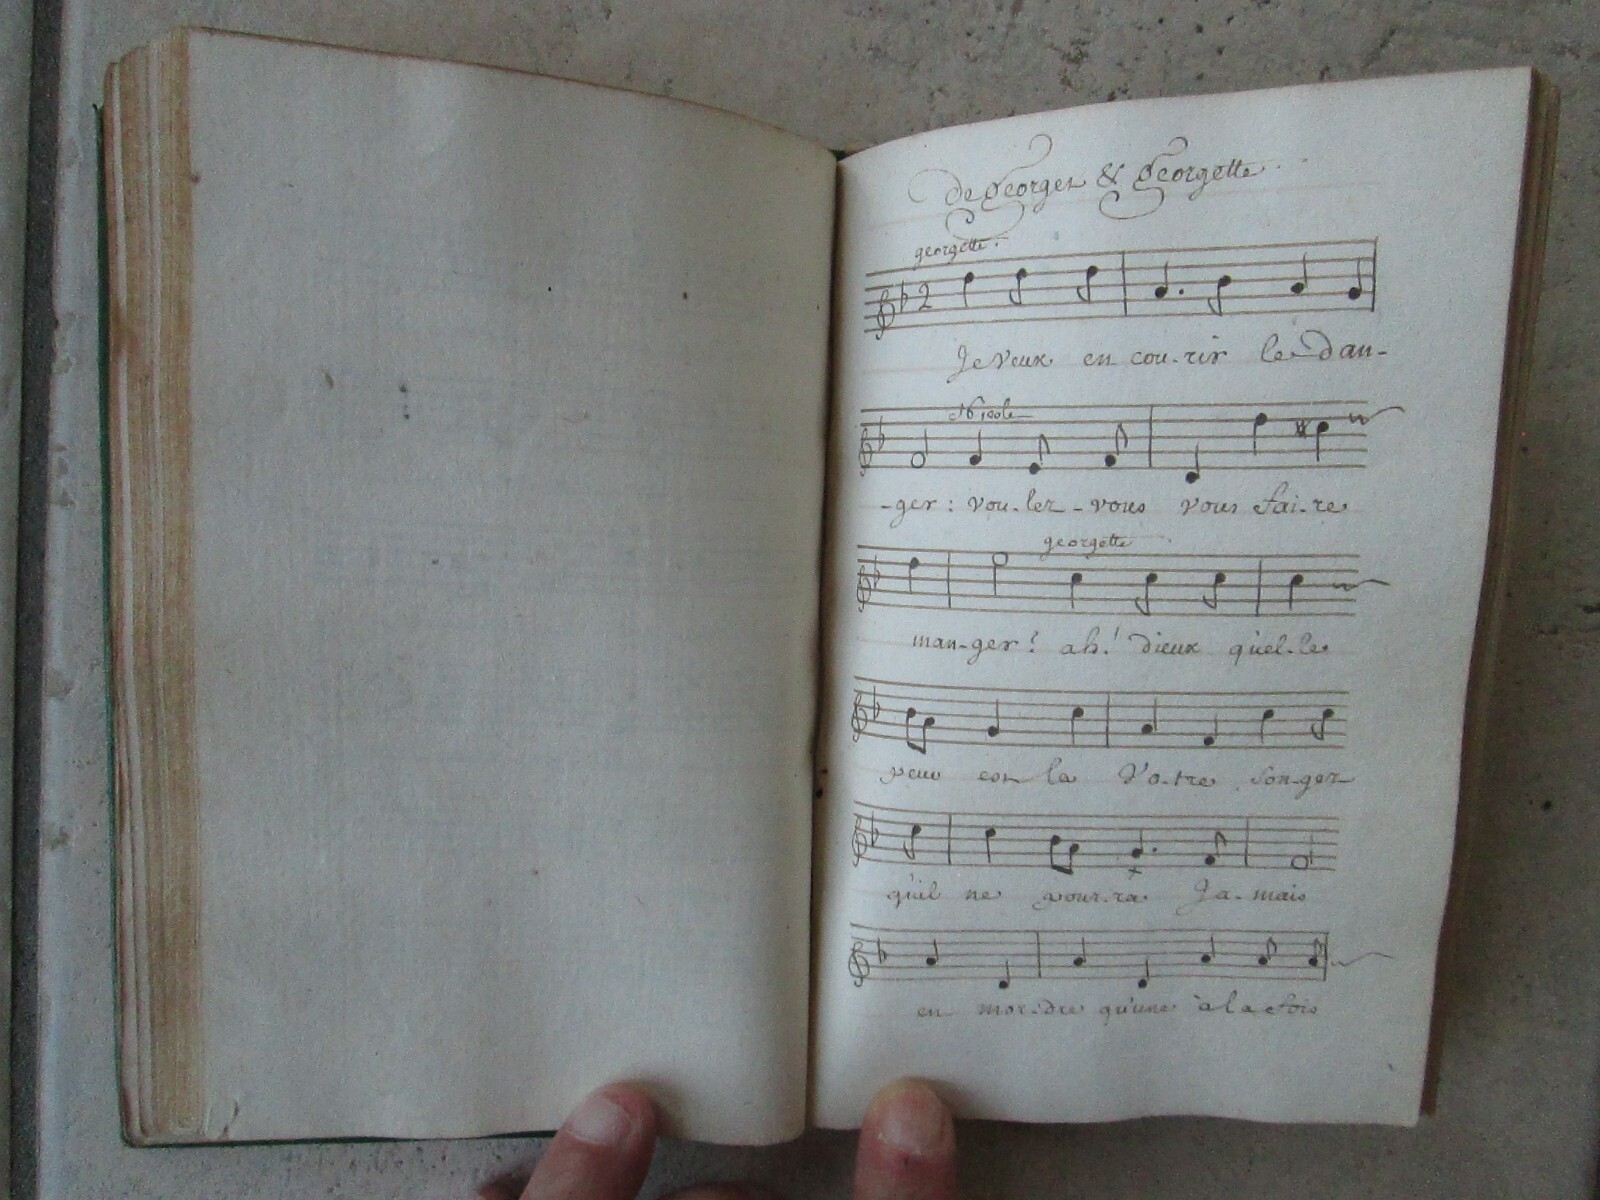 De georges & georgette.
georgette.
2
Je veux en cou-rir le dan-
Nicole
-ger: vou-lez-vous vous fai-re
georgette
man-ger? ah! dieux quel-le
peur est la Vo-tre songez
qu'il ne pour-ra Ja-mais
en mor-dre qu'une à la fois